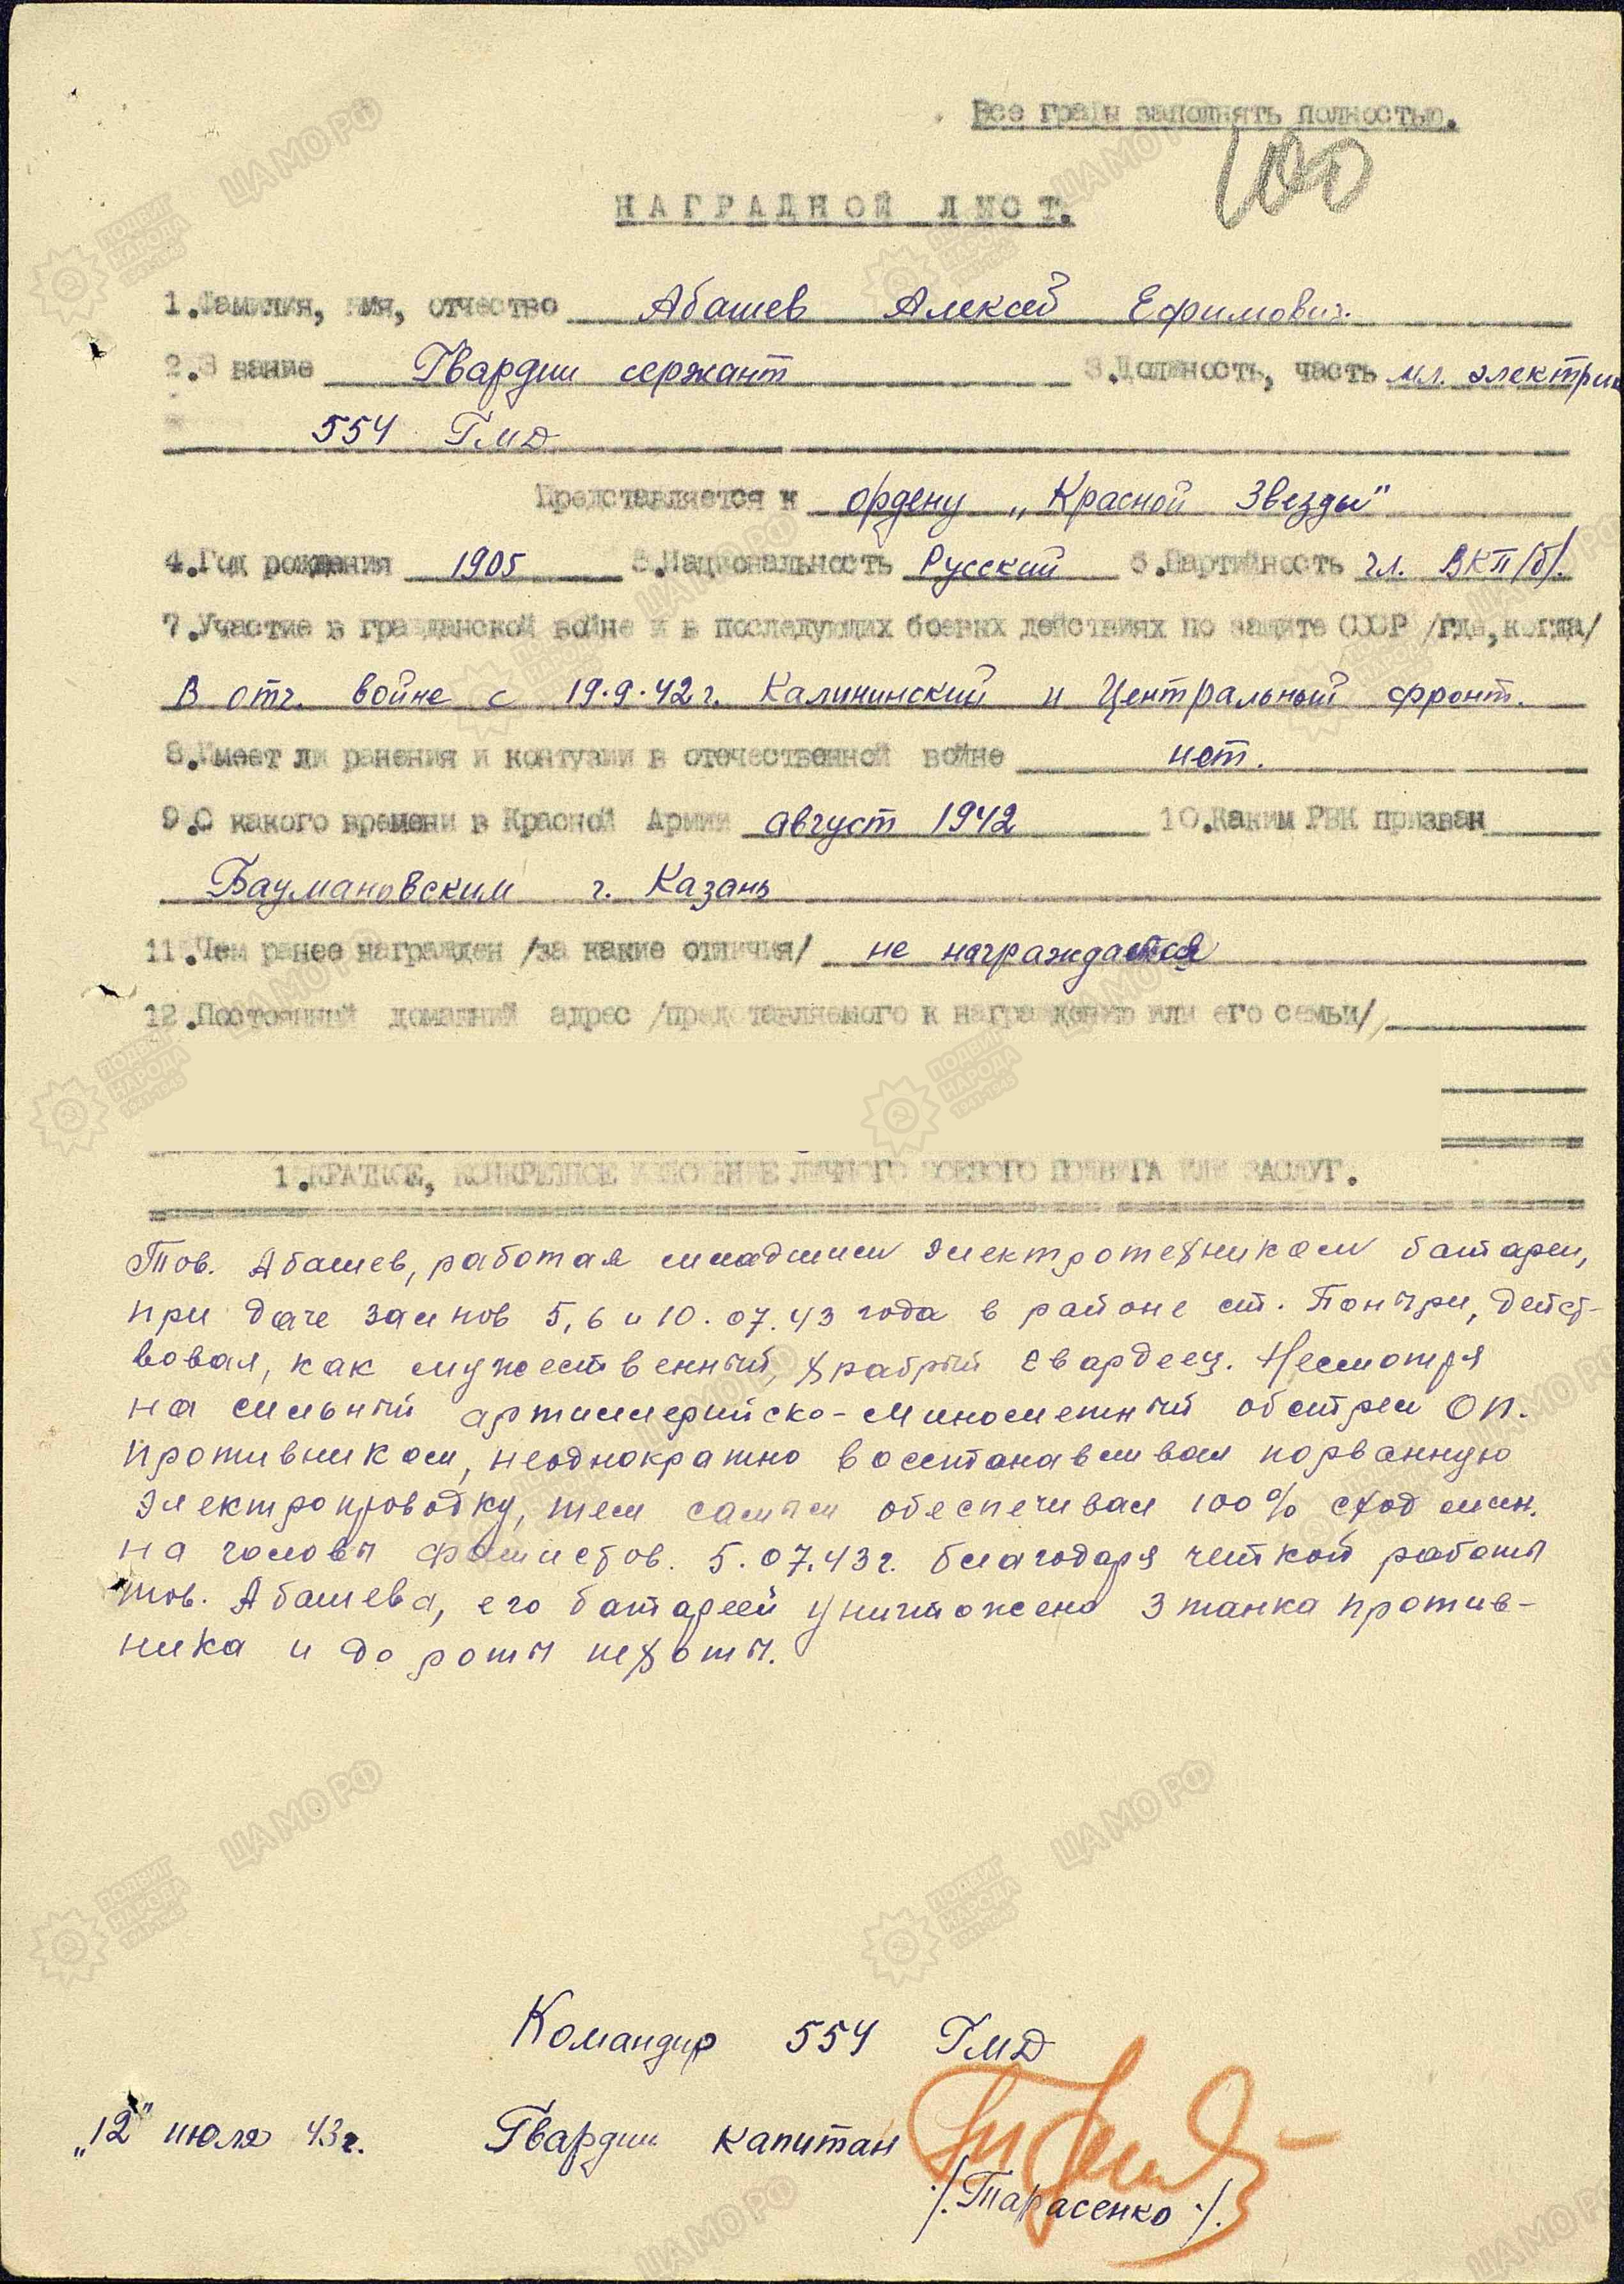 Все графы заполнять полностью.
100
НАГРАДНОЙ ЛИСТ.
1.Фамилия, имя, отчество Абашев Алексей Ефимович.
2.Звание Гвардии сержант 3.Должность, часть мл. электрик
554 ГМД
Представляется к ордену „Красной Звезды"
4.Год рождения 1905 5.Национальность Русский 6.Партийность чл. ВКП/б/.
7.Участие в гражданской войне и в последующих боевых действиях по защите СССР /где, когда/
В отч. войне с 19.9.42 г. Калининский и Центральный фронт.
8.Имеет ли ранения и контузии в отечественной войне нет.
9.С какого времени в Красной Армии август 1942 10.Каким РВК призван
Баумановским г. Казань
11.Чем ранее награжден /за какие отличия/ не награждался
12.Постоянный домашний адрес /представляемого к награждению или его семьи/
1.КРАТКОЕ, КОНКРЕТНОЕ ИЗЛОЖЕНИЕ ЛИЧНОГО БОЕВОГО ПОДВИГА ИЛИ ЗАСЛУГ.
Тов. Абашев, работая младшим электротехником батареи,
при даче залпов 5, 6 и 10.07.43 года в районе ст. Поныри, дейст-
вовал, как мужественный, храбрый гвардеец. Несмотря
на сильный артиллерийско-минометный обстрел ОП.
противником, неоднократно восстанавливал порванную
электропроводку, тем самым обеспечивал 100% сход мин.
на головы фашистов. 5.07.43г. благодаря четкой работы
тов. Абашева, его батареей уничтожено 3 танка против-
ника и до роты пехоты.
Командир 554 ГМД
„12" июля 43г. Гвардии капитан
/.Тарасенко./.
ЦАМО РФ
ПОДВИГ НАРОДА 1941-1945